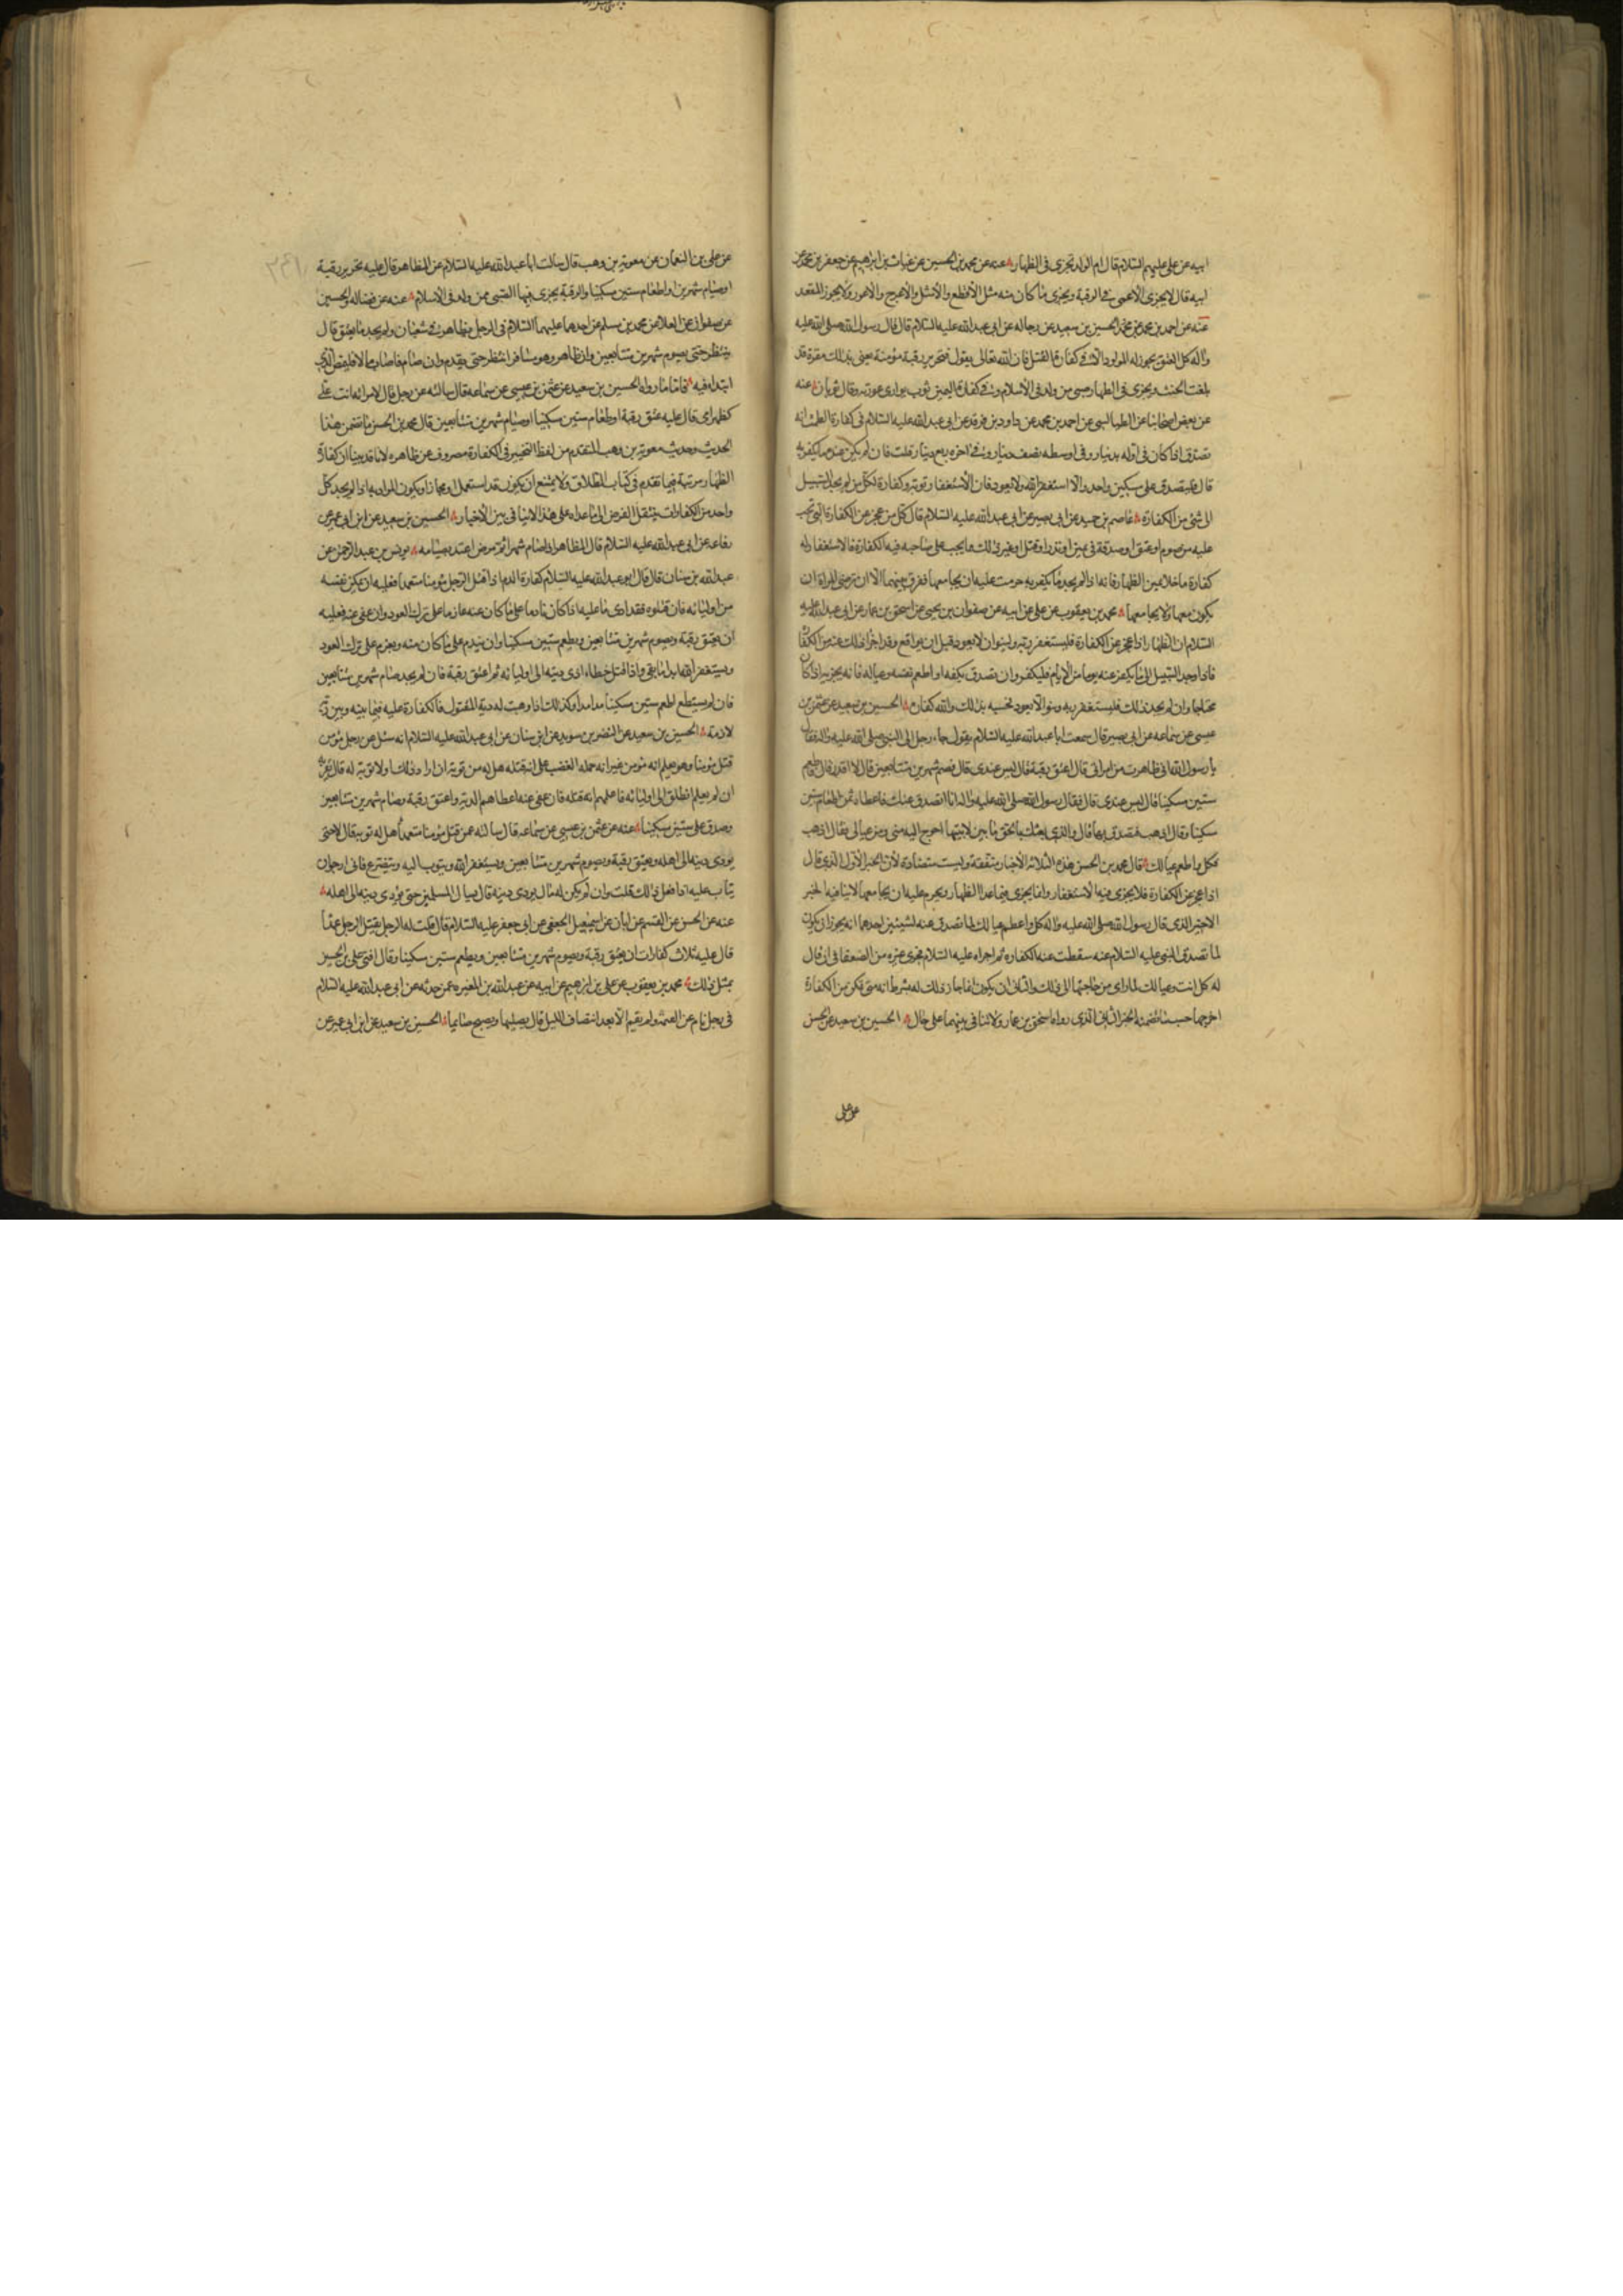 ابيه عن علي عليهم السلام قال ام الولد تجزي في الظهار عنه عن محمد بن الحسين عن غياث بن ابراهيم عن جعفر بن محمد عن
ابيه قال لا يجزي الاعمى في الرقبة ويجزي ما كان منه مثل الاقطع والاشل والاعرج والاعور ولا يجوز المقعد
عنه عن احمد بن محمد بن محمد الحسين بن سعيد عن رجاله عن ابي عبد الله عليه السلام قال قال رسول الله صلى الله عليه
واله كل العتق يجوز له المولود الا في كفارة القتل فان الله تعالى يقول فتحرير رقبة مؤمنة يعني بذلك مقرة قد
بلغت الحنث ويجزي في الظهار صبي ممن ولد في الاسلام وفي كفارة اليمين ثوب يواري عورته وقال ثوبان عنه
عن بعض اصحابنا عن الطيالسي عن احمد بن محمد عن داود بن فرقد عن ابي عبد الله عليه السلام في كفارة الطمث انه
تصدق اذا كان في اوله بدينار وفي اوسطه نصف دينار وفي اخره ربع دينار قلت فان لم يكن عنده ما يكفر به
قال فليتصدق على مسكين واحد والا استغفر الله ولا يعود فان الاستغفار توبة وكفارة لكل من لم يجد السبيل
الى شئ من الكفارة عاصم بن حميد عن ابي بصير عن ابي عبد الله عليه السلام قال كل من عجز عن الكفارة التي تجب
عليه من صوم او عتق او صدقة في يمين او نذر او قتل او غير ذلك مما يجب على صاحبه فيه الكفارة فالاستغفار له
كفارة ما خلا يمين الظهار فانه اذا لم يجد ما يكفر به حرمت عليه ان يجامعها وفرق بينهما الا ان ترضى المراة ان
يكون معها ولا يجامعها محمد بن يعقوب عن علي عن ابيه عن صفوان بن يحيى عن اسحق بن عمار عن ابي عبد الله عليه
السلام ان الظهار اذا عجز عن الكفارة فليستغفر ربه ولينو ان لا يعود قبل ان يواقع وقد اجزأ ذلك عنه من الكفا
فاذا وجد السبيل الى ما يكفر عنه يوما من الايام فليكفر وان تصدق بكفه او اطعم نفسه وعياله فانه يجزيه اذا كان
محتاجا وان لم يجد ذلك فليستغفر ربه وينو الا يعود فحسبه بذلك والله كفارة الحسين بن سعيد عن عثمن بن
عيسى عن سماعه عن ابي بصير قال سمعت ابا عبد الله عليه السلام يقول جاء رجل الى النبي صلى الله عليه واله فقال
يا رسول الله اني ظاهرت من امراتي قال اعتق رقبة قال ليس عندي قال فصم شهرين متتابعين قال لا اقدر قال فاطعم
ستين مسكينا قال ليس عندي قال فقال رسول الله صلى الله عليه واله انا اتصدق عنك فاعطاه ثمن اطعام ستين
مسكينا وقال اذهب فتصدق بها قال والذي بعثك بالحق ما بين لابتيها احوج اليه مني ومن عيالي فقال اذهب
فكل واطعم عيالك قال محمد بن الحسن هذه الثلاثة الاخبار متفقة وليست متضادة لان الخبر الاول الذي قال
اذا عجز عن الكفارة فلا يجزي فيه الاستغفار وانما يجزي فيما عدا الظهار ويحرم عليه ان يجامعها لا ينافيه الخبر
الاخير الذي قال رسول الله صلى الله عليه واله كل واطعم عيالك لما تصدق عنه لشيئين احدهما انه يجوز ان يكون
لما تصدق النبي عليه السلام عنه سقطت عنه الكفارة ثم اجراه عليه السلام مجرى غيره من الضعفا في ان قال
له كل انت وعيالك لما راى من حاجتهما الى ذلك والثاني ان يكون انما جاز ذلك له بشرط انه متى تمكن من الكفارة
اخرجها حسب ما تضمنه الخبر الثاني الذي رواه اسحق بن عمار ولا تنافي بينهما على حال الحسين بن سعيد عن الحسن
عن علي
عن علي بن النعمان عن معوية بن وهب قال سالت ابا عبد الله عليه السلام عن المظاهر قال عليه تحرير رقبة
او صيام شهرين او اطعام ستين مسكينا والرقبة يجزي فيها الصبي ممن ولد في الاسلام عنه عن فضاله والحسين
عن صفوان عن العلا عن محمد بن مسلم عن احدهما عليهما السلام في الرجل يظاهر في شعبان ولم يجد ما يعتق قال
ينتظر حتى يصوم شهرين متتابعين وان ظاهر وهو مسافر انتظر حتى يقدم وان صام فاصاب مالا فليمض الذي
ابتدا فيه فاما ما رواه الحسين بن سعيد عن عثمن بن عيسى عن سماعه قال سالته عن رجل قال لامراته انت علي
كظهر امي قال عليه عتق رقبة او اطعام ستين مسكينا او صيام شهرين متتابعين قال محمد بن الحسن ما تضمن هذا
الحديث وحديث معوية بن وهب المتقدم من لفظ التخيير في الكفارة مصروف عن ظاهره لانا قد بينا ان كفارة
الظهار مرتبة فيما تقدم في كتاب الطلاق ولا يمتنع ان يكون قد استعمل او مجازا ويكون المراد به اذا لم يجد كل
واحد من الكفارات ينتقل الفرض الى ما عداه على هذا لا تنافي بين الاخبار الحسين بن سعيد عن ابن ابي عمير عن
رفاعه عن ابي عبد الله عليه السلام قال المظاهر اذا صام شهرا ثم مرض اعتد بصيامه يونس بن عبد الرحمن عن
عبد الله بن سنان قال قال ابو عبد الله عليه السلام كفارة الدم اذا قتل الرجل مؤمنا متعمدا فعليه ان يمكن نفسه
من اوليائه فان قتلوه فقد ادى ما عليه اذا كان نادما على ما كان عنه عازما على ترك العود وان عفي عنه فعليه
ان يعتق رقبة ويصوم شهرين متتابعين ويطعم ستين مسكينا وان يندم على ما كان منه ويعزم على ترك العود
ويستغفر الله ابدا ما بقي واذا قتل خطاء ادى ديته الى اوليائه ثم اعتق رقبة فان لم يجد صام شهرين متتابعين
فان لم يستطع اطعم ستين مسكينا مدا مدا وكذلك اذا وهبت له دية المقتول فالكفارة عليه فيما بينه وبين ربه
لازمة الحسين بن سعيد عن النضر بن سويد عن ابن سنان عن ابي عبد الله عليه السلام انه سئل عن رجل مؤمن
قتل مؤمنا وهو يعلم انه مؤمن غير انه حمله الغضب على ان قتله هل له من توبة ان اراد ذلك او لا توبة له قال
ان لم يعلم انطلق الى اوليائه فاعلمهم انه قتله فان عفي عنه اعطاهم الدية واعتق رقبة وصام شهرين متتابعين
وصدق على ستين مسكينا عنه عن عثمن بن عيسى عن سماعه قال سالته عمن قتل مؤمنا متعمدا هل له توبة قال لا حتى
يودي ديته الى اهله ويعتق رقبة ويصوم شهرين متتابعين ويستغفر الله ويتوب اليه ويتضرع فاني ارجو ان
يتاب عليه اذا فعل ذلك قلت وان لم يكن له مال يودي ديته قال يسال المسلمين حتى يؤدي ديته الى اهله
عنه عن الحسن عن القسم عن ابان عن اسمعيل الجعفي عن ابي جعفر عليه السلام قال قلت له الرجل يقتل الرجل عمدا
قال عليه ثلاث كفارات ان يعتق رقبة ويصوم شهرين متتابعين ويطعم ستين مسكينا وقال افتى علي بن الحسين
بمثل ذلك محمد بن يعقوب عن علي بن ابرهيم عن ابيه عن عبد الله بن المغيره عمن حدثه عن ابي عبد الله عليه السلام
في رجل نام عن العتمة ولم يقم الا بعد انتصاف الليل قال يصليها ويصبح صايما الحسين بن سعيد عن ابن ابي عمير عن